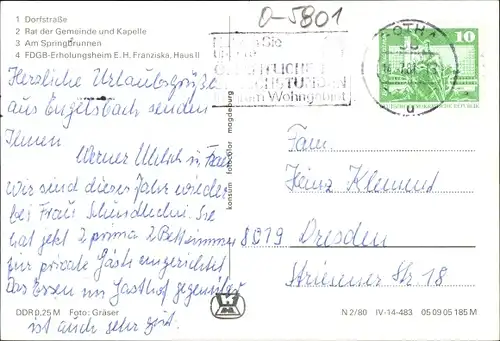 O-5801
1 Dorfstraße
2 Rat der Gemeinde und Kapelle
3 Am Springbrunnen
4 FDGB-Erholungsheim E. H. Franziska, Haus II
GOTHA
581
u
10
Wohngebiet
Herzliche Urlaubsgrüße
aus Engelsbach senden
Ihnen
Werner u. Frau
Wir sind dieses Jahr wieder
bei Frau Sie
hat jetzt 2 prima 2 Bettzimmer
für private Gäste eingerichtet
Das Essen im Gasthof gegenüber
ist auch sehr gut.
konsum fotocolor magdeburg
Fam.
Heinz Klement
8019 Dresden
Striesener Str. 18
DDR 0,25 M Foto: Gräser
N 2/80 IV-14-483 05 09 05 185 M